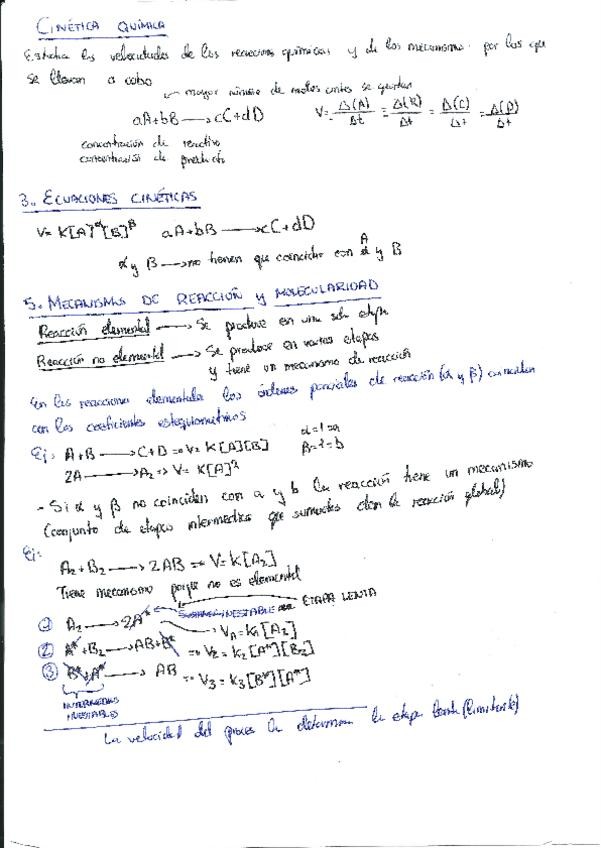 CINÉTICA QUÍMICA
Estudia las velocidades de las reacciones químicas y de los mecanismos por los que
se llevan a cabo
mayor número de moles antes se gastan
aA+bB → cC+dD V= Δ(A)/Δt = Δ(B)/Δt = Δ(C)/Δt = Δ(D)/Δt
concentración de reactivo
concentración de producto
3.. ECUACIONES CINÉTICAS
V= K[A]^α[B]^β aA+bB → cC+dD
α y β → no tienen que coincidir con A y B
5. MECANISMOS DE REACCIÓN y MOLECULARIDAD
Reacción elemental → Se produce en una sola etapa
Reacción no elemental → Se produce en varias etapas
y tiene un mecanismo de reacción
En las reacciones elementales los órdenes parciales de reacción (α y β) coinciden
con los coeficientes estequiométricos
Ej: A+B → C+D => V= K[A][B] α=1=a
2A → A2 => V= K[A]² β=1=b
- Si α y β no coinciden con a y b la reacción tiene un mecanismo
(conjunto de etapas intermedias que sumadas dan la reacción global)
Ej:
A2+B2 → 2AB => V= K[A2]
Tiene mecanismo porque no es elemental
INESTABLE ETAPA LENTA
① A2 → 2A* → VA= K1[A2]
② A*+B2 → AB+B* => V2= K2[A*][B2]
③ B*+A* → AB => V3= K3[B*][A*]
INTERMEDIOS
INESTABLES
La velocidad del proceso la determina la etapa lenta (limitante)